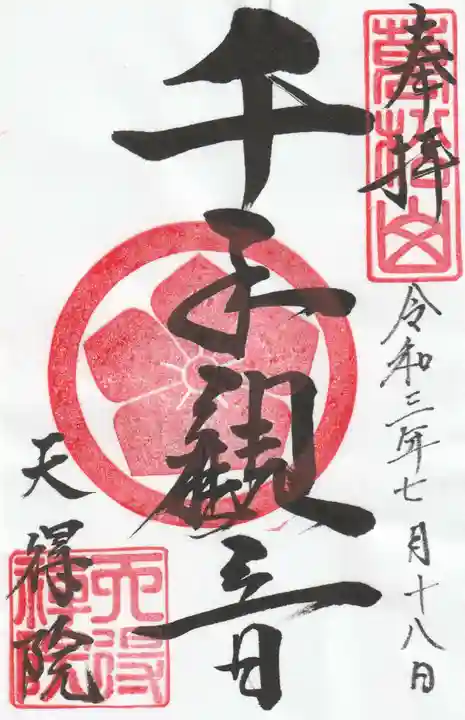 奉拝
萬松山
令和三年七月十八日
千手観音
天得院
天得院印